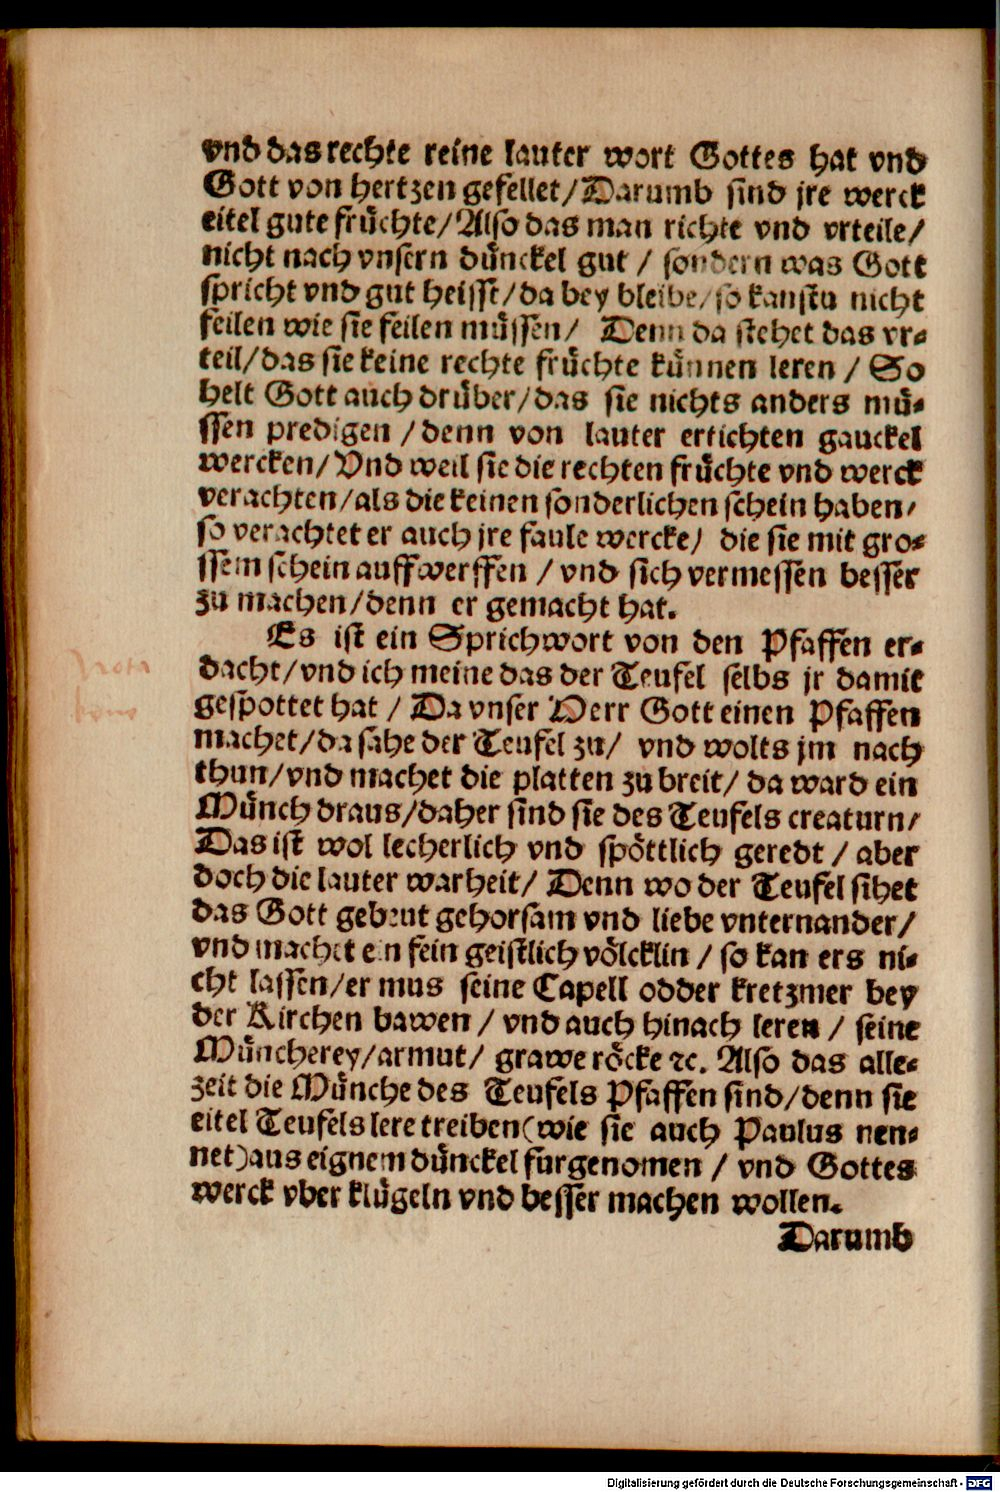 vnd das rechte reine lauter wort Gottes hat vnd
Gott von hertzen gefellet/Darumb sind jre werck
eitel gute früchte/Also das man richte vnd vrteile/
nicht nach vnsern dünckel gut / sondern was Gott
spricht vnd gut heisst/da bey bleibe/so kanstu nicht
feilen wie sie feilen müssen/ Denn da stehet das vr-
teil/das sie keine rechte früchte künnen leren / So
helt Gott auch drüber/das sie nichts anders mü-
ssen predigen /denn von lauter ertichten gauckel
wercken/Vnd weil sie die rechten früchte vnd werck
verachten/als die keinen sonderlichen schein haben/
so verachtet er auch jre faule wercke/ die sie mit gro-
ssem schein auffwerffen /vnd sich vermessen besser
zu machen/denn er gemacht hat.
Es ist ein Sprichwort von den Pfaffen er-
dacht/vnd ich meine das der Teufel selbs jr damit
gespottet hat / Da vnser Herr Gott einen Pfaffen
machet/da sahe der Teufel zu/ vnd wolts jm nach
thun/vnd machet die platten zu breit/da ward ein
Münch draus/daher sind sie des Teufels creaturn/
Das ist wol lecherlich vnd spöttlich geredt / aber
doch die lauter warheit/ Denn wo der Teufel sihet
das Gott gebeut gehorsam vnd liebe vnternander/
vnd machet ein fein geistlich völcklin / so kan ers ni-
cht lassen/er mus seine Capell odder kretzmer bey
der Kirchen bawen / vnd auch hinach leren / seine
Müncherey/armut/ grawe röcke ꝛc. Also das alle-
zeit die Münche des Teufels Pfaffen sind/denn sie
eitel Teufels lere treiben(wie sie auch Paulus nen-
net)aus eignem dünckel furgenomen / vnd Gottes
werck vber klügeln vnd besser machen wollen.
Darumb
Digitalisierung gefördert durch die Deutsche Forschungsgemeinschaft - DFG